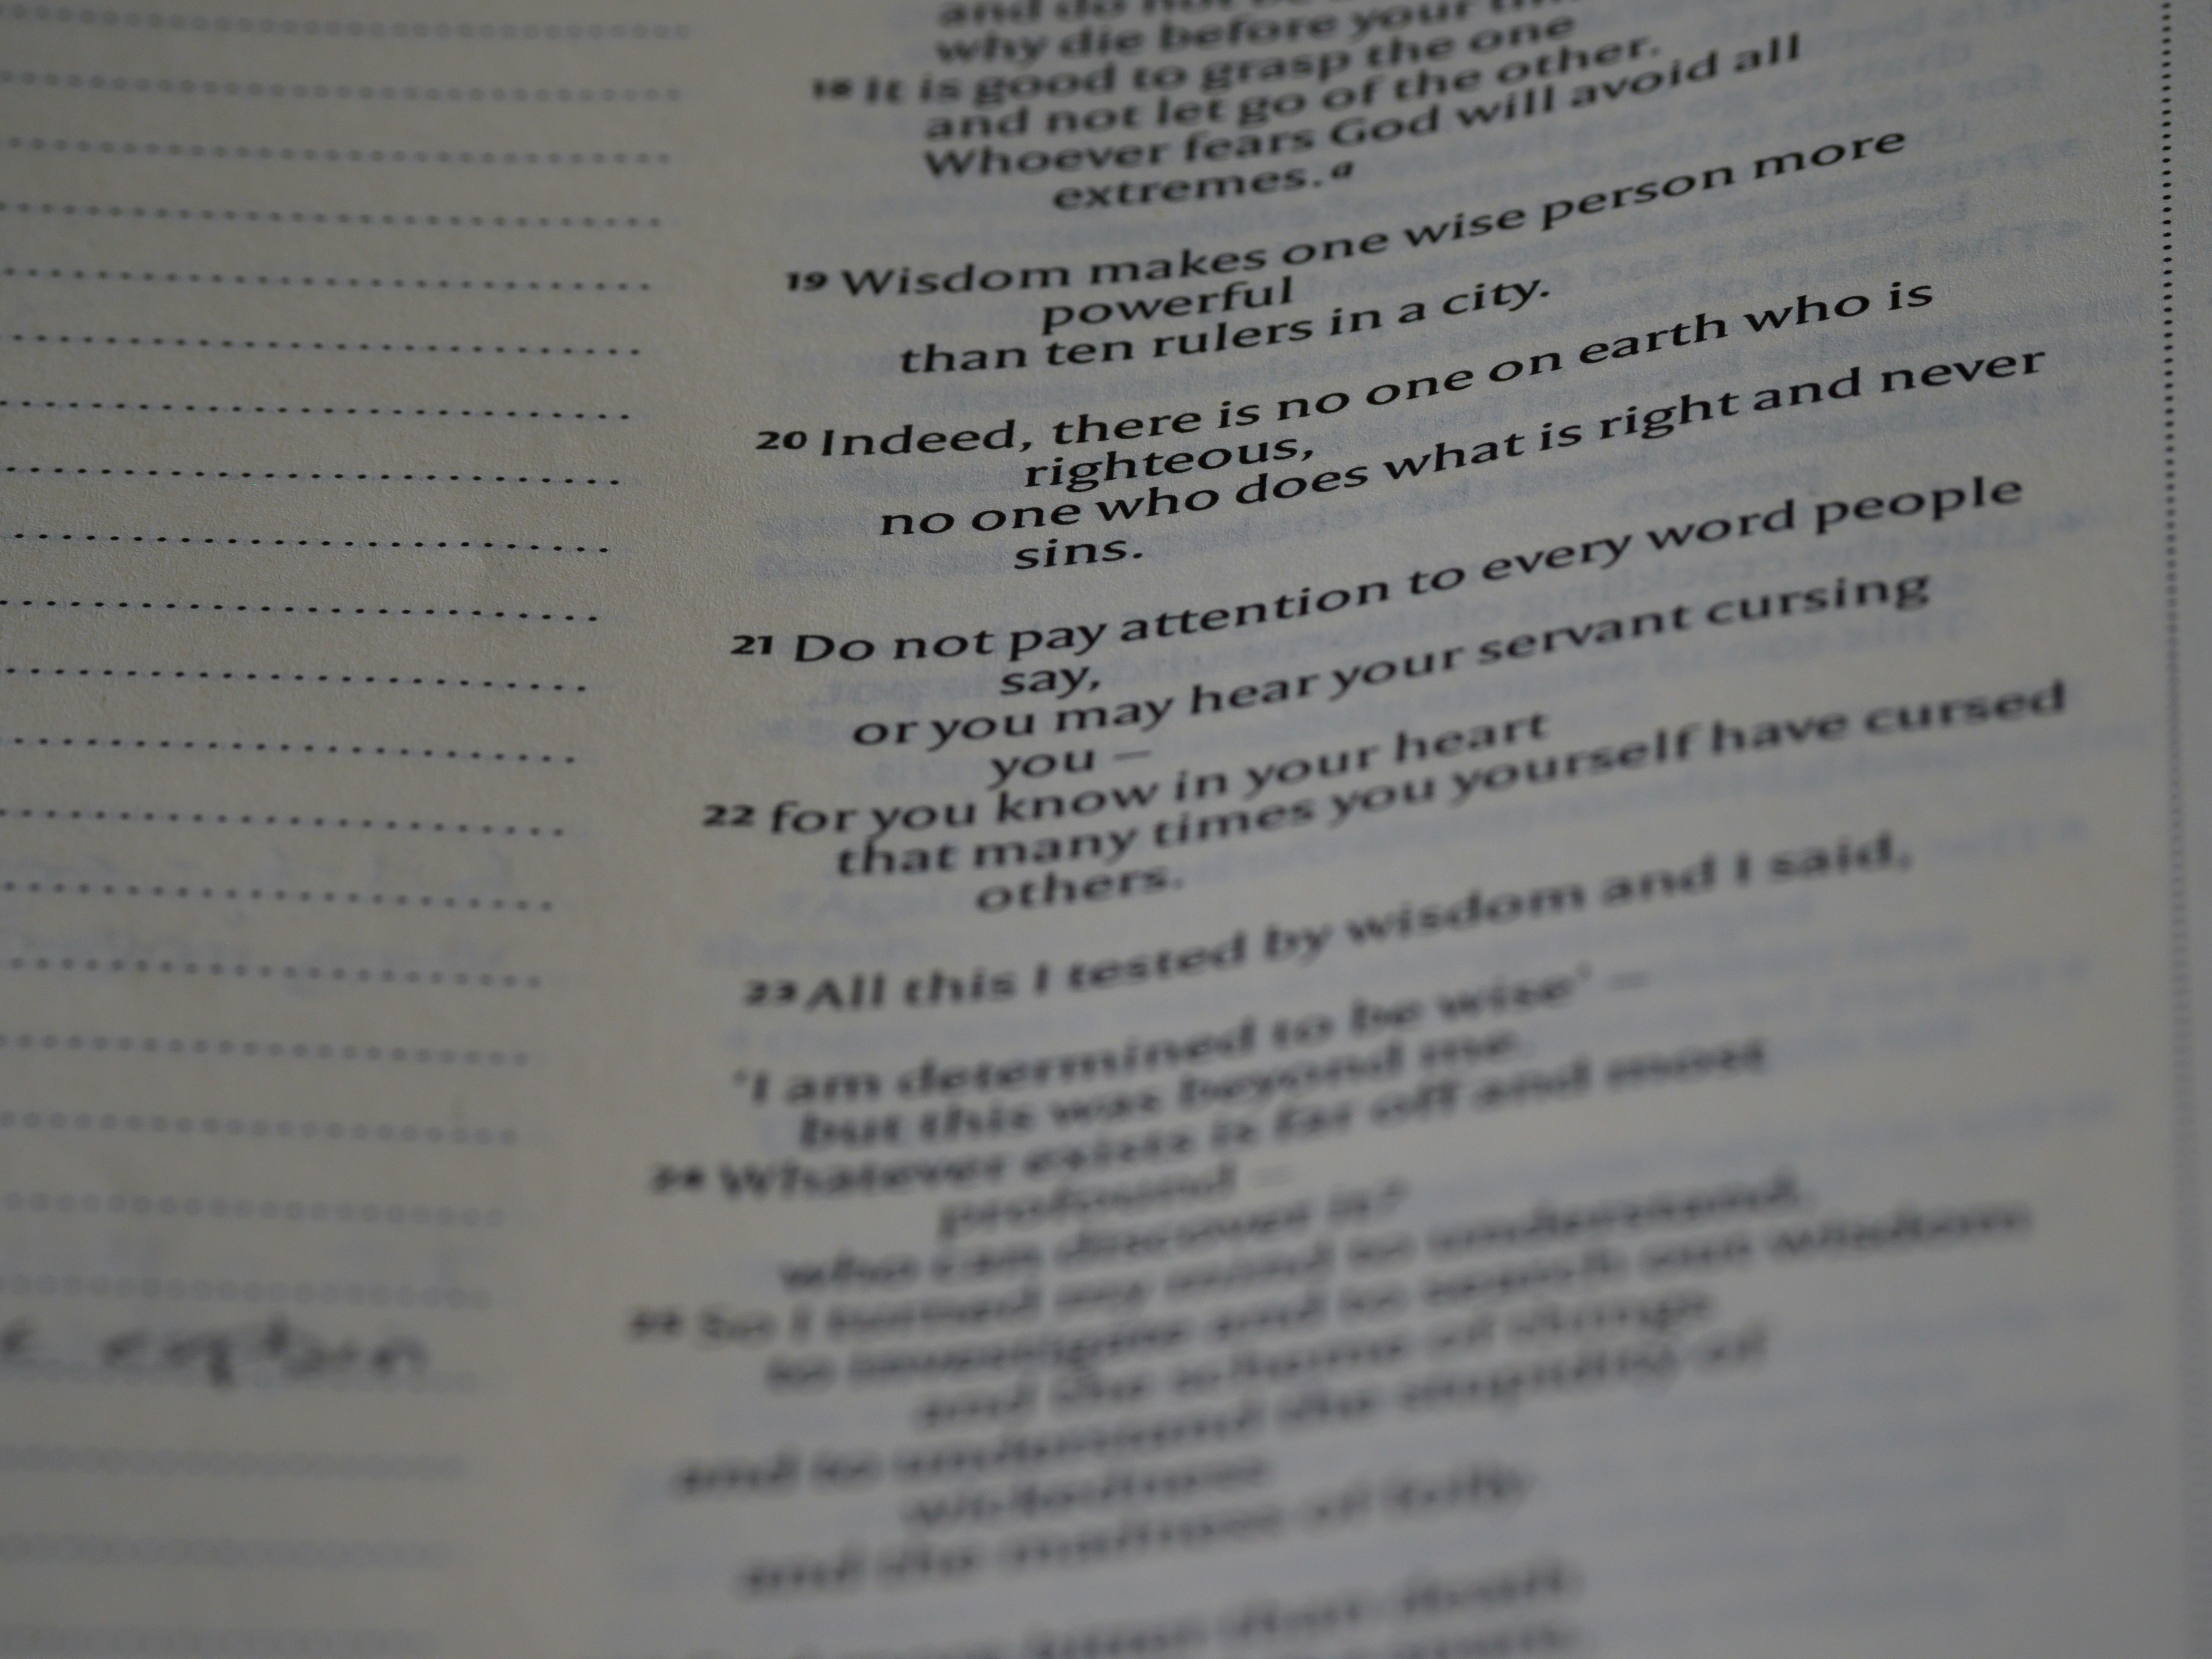 why die before your
18 It is good to grasp the one
and not let go of the other.
Whoever fears God will avoid all
extremes.a
19 Wisdom makes one wise person more
powerful
than ten rulers in a city.
20 Indeed, there is no one on earth who is
righteous,
no one who does what is right and never
sins.
21 Do not pay attention to every word people
say,
or you may hear your servant cursing
you –
22 for you know in your heart
that many times you yourself have cursed
others.
23 All this I tested by wisdom and I said,
‘I am determined to be wise’ –
but this was beyond me.
24 Whatever exists is far off and most
profound –
who can discover it?
25 So I turned my mind to understand,
to investigate and to search out wisdom
and the scheme of things
and to understand the stupidity of
wickedness
and the madness of folly.